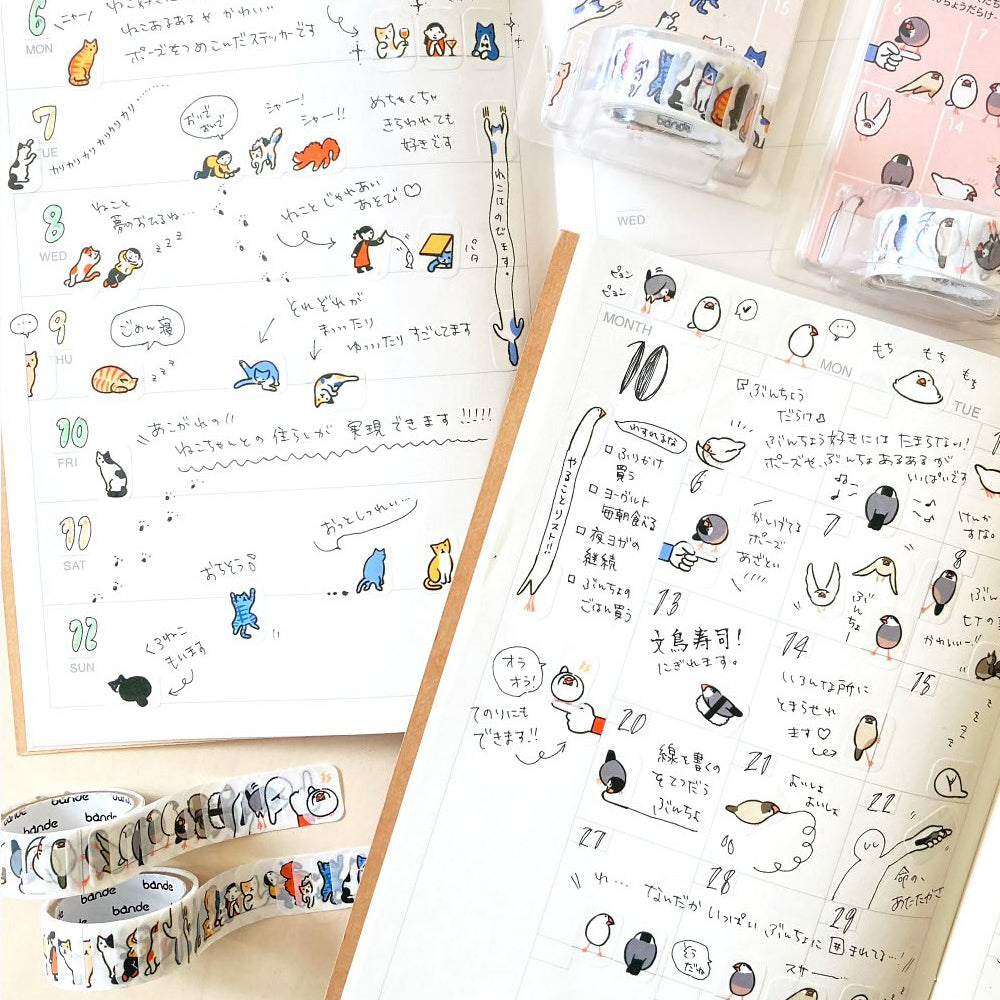 6
MON
ニャンー
ねこあるあるや かわいい
ポーズをつめこんだステッカーです
7
TUE
カリカリカリカリカリカリカリ
おいで
おいで
シャー!
シャー!!
めちゃくちゃ
きらわれても
好きです
ねこはのびます。
8
WED
ねこと
夢のおひるね…
zzz
ねこと じゃれあい
あそび♡
パタ
9
THU
ごめん寝
zzz
それぞれが
まっったり
ゆっったり すごしてます
10
FRI
あこがれの!!
ねこちゃんとの 住らしが 実現できます!!!!!
11
SAT
おっとしつれい…
おちそう
12
SUN
くろねこ
もいます
bande
bande
bande
bande
bande
bande
15
bande
WED
6
7
13
14
ピョン
ピョン
MONTH
10
MON
もち もち
もち
TUE
ぶんちょう
だらけ♪
ぶんちょう好きには たまらない!
ポーズや、ぶんちょあるあるが
いっぱいです
やることリスト!!
わすれるな
□ ふりかけ
買う
□ ヨーグルト
毎朝食べる
□ 夜ヨガの
継続
□ ぶんちょの
ごはん買う
6
かしげてる
ポーズ
あざとい
7
ぶんちょー
8
けんか
すな。
かわいいー!!
13
文鳥寿司!
にぎれます。
14
いろんな所に
とまらせれ
ます♡
15
zzz
オラ
オラ!
てのりにも
できます!!
20
線を書くの
をてつだう
ぶんちょ
21
よいしょ
よいしょ
22
命の、
あたたかさ
27
28
29
れ… なんだか いっぱい ぶんちょに 囲まれてる…!
そう
だね
スサー…